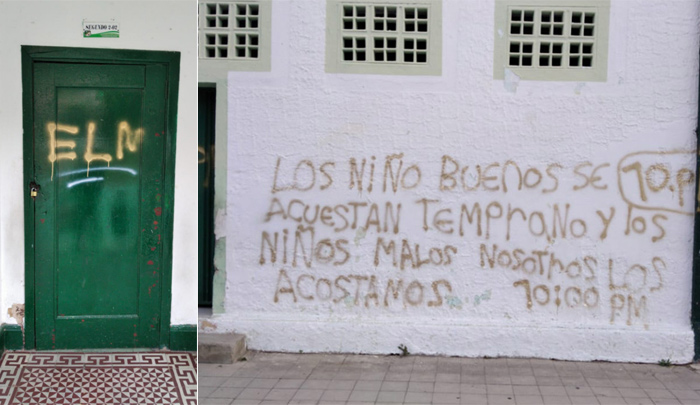 SEGUNDO 2-02
ELN
LOS NIÑO BUENOS SE 10.P
ACUESTAN TEMPRANO Y LOS
NIÑOS MALOS NOSOTROS LOS
ACOSTAMOS. 10:00 PM